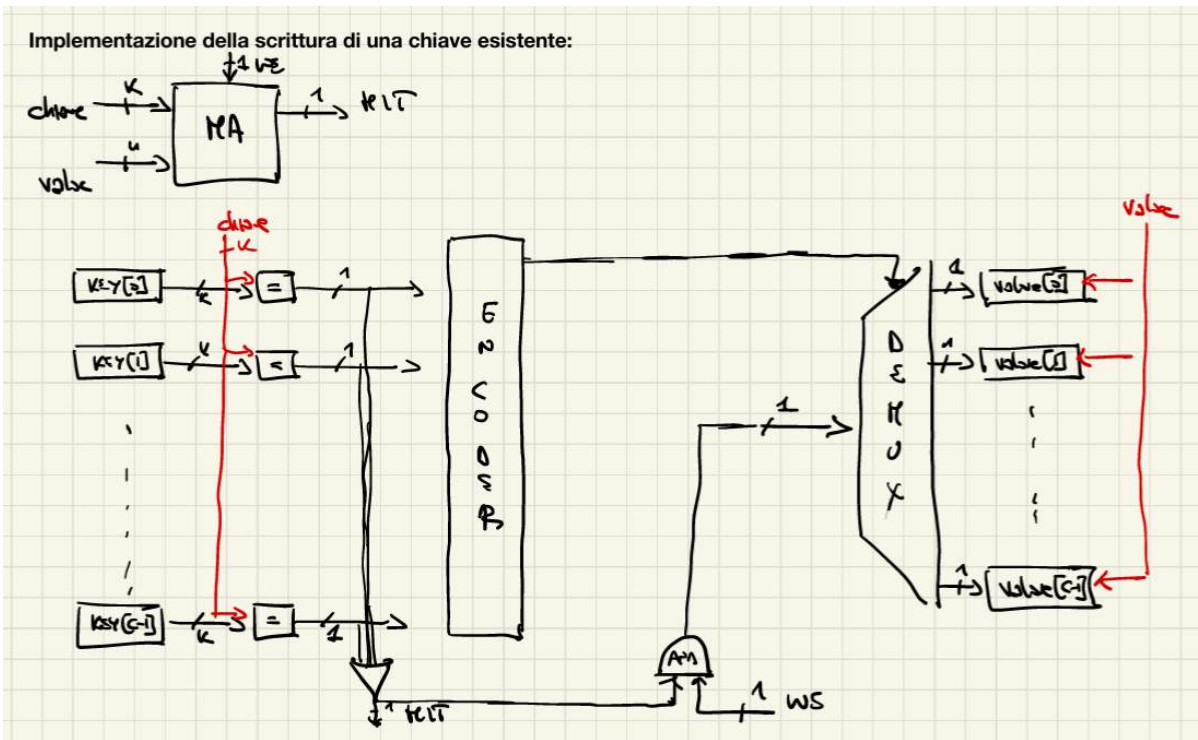 Implementazione della scrittura di una chiave esistente:
1 WE
chiave K
MA
1 HIT
value
chiave
K
value
KEY[0] K = 1
1 value[0]
KEY[1] K = 1
1 value[1]
ENCODER
DEMUX
1
KEY[C-1] K = 1
1 value[C-1]
AND
1 HIT
1